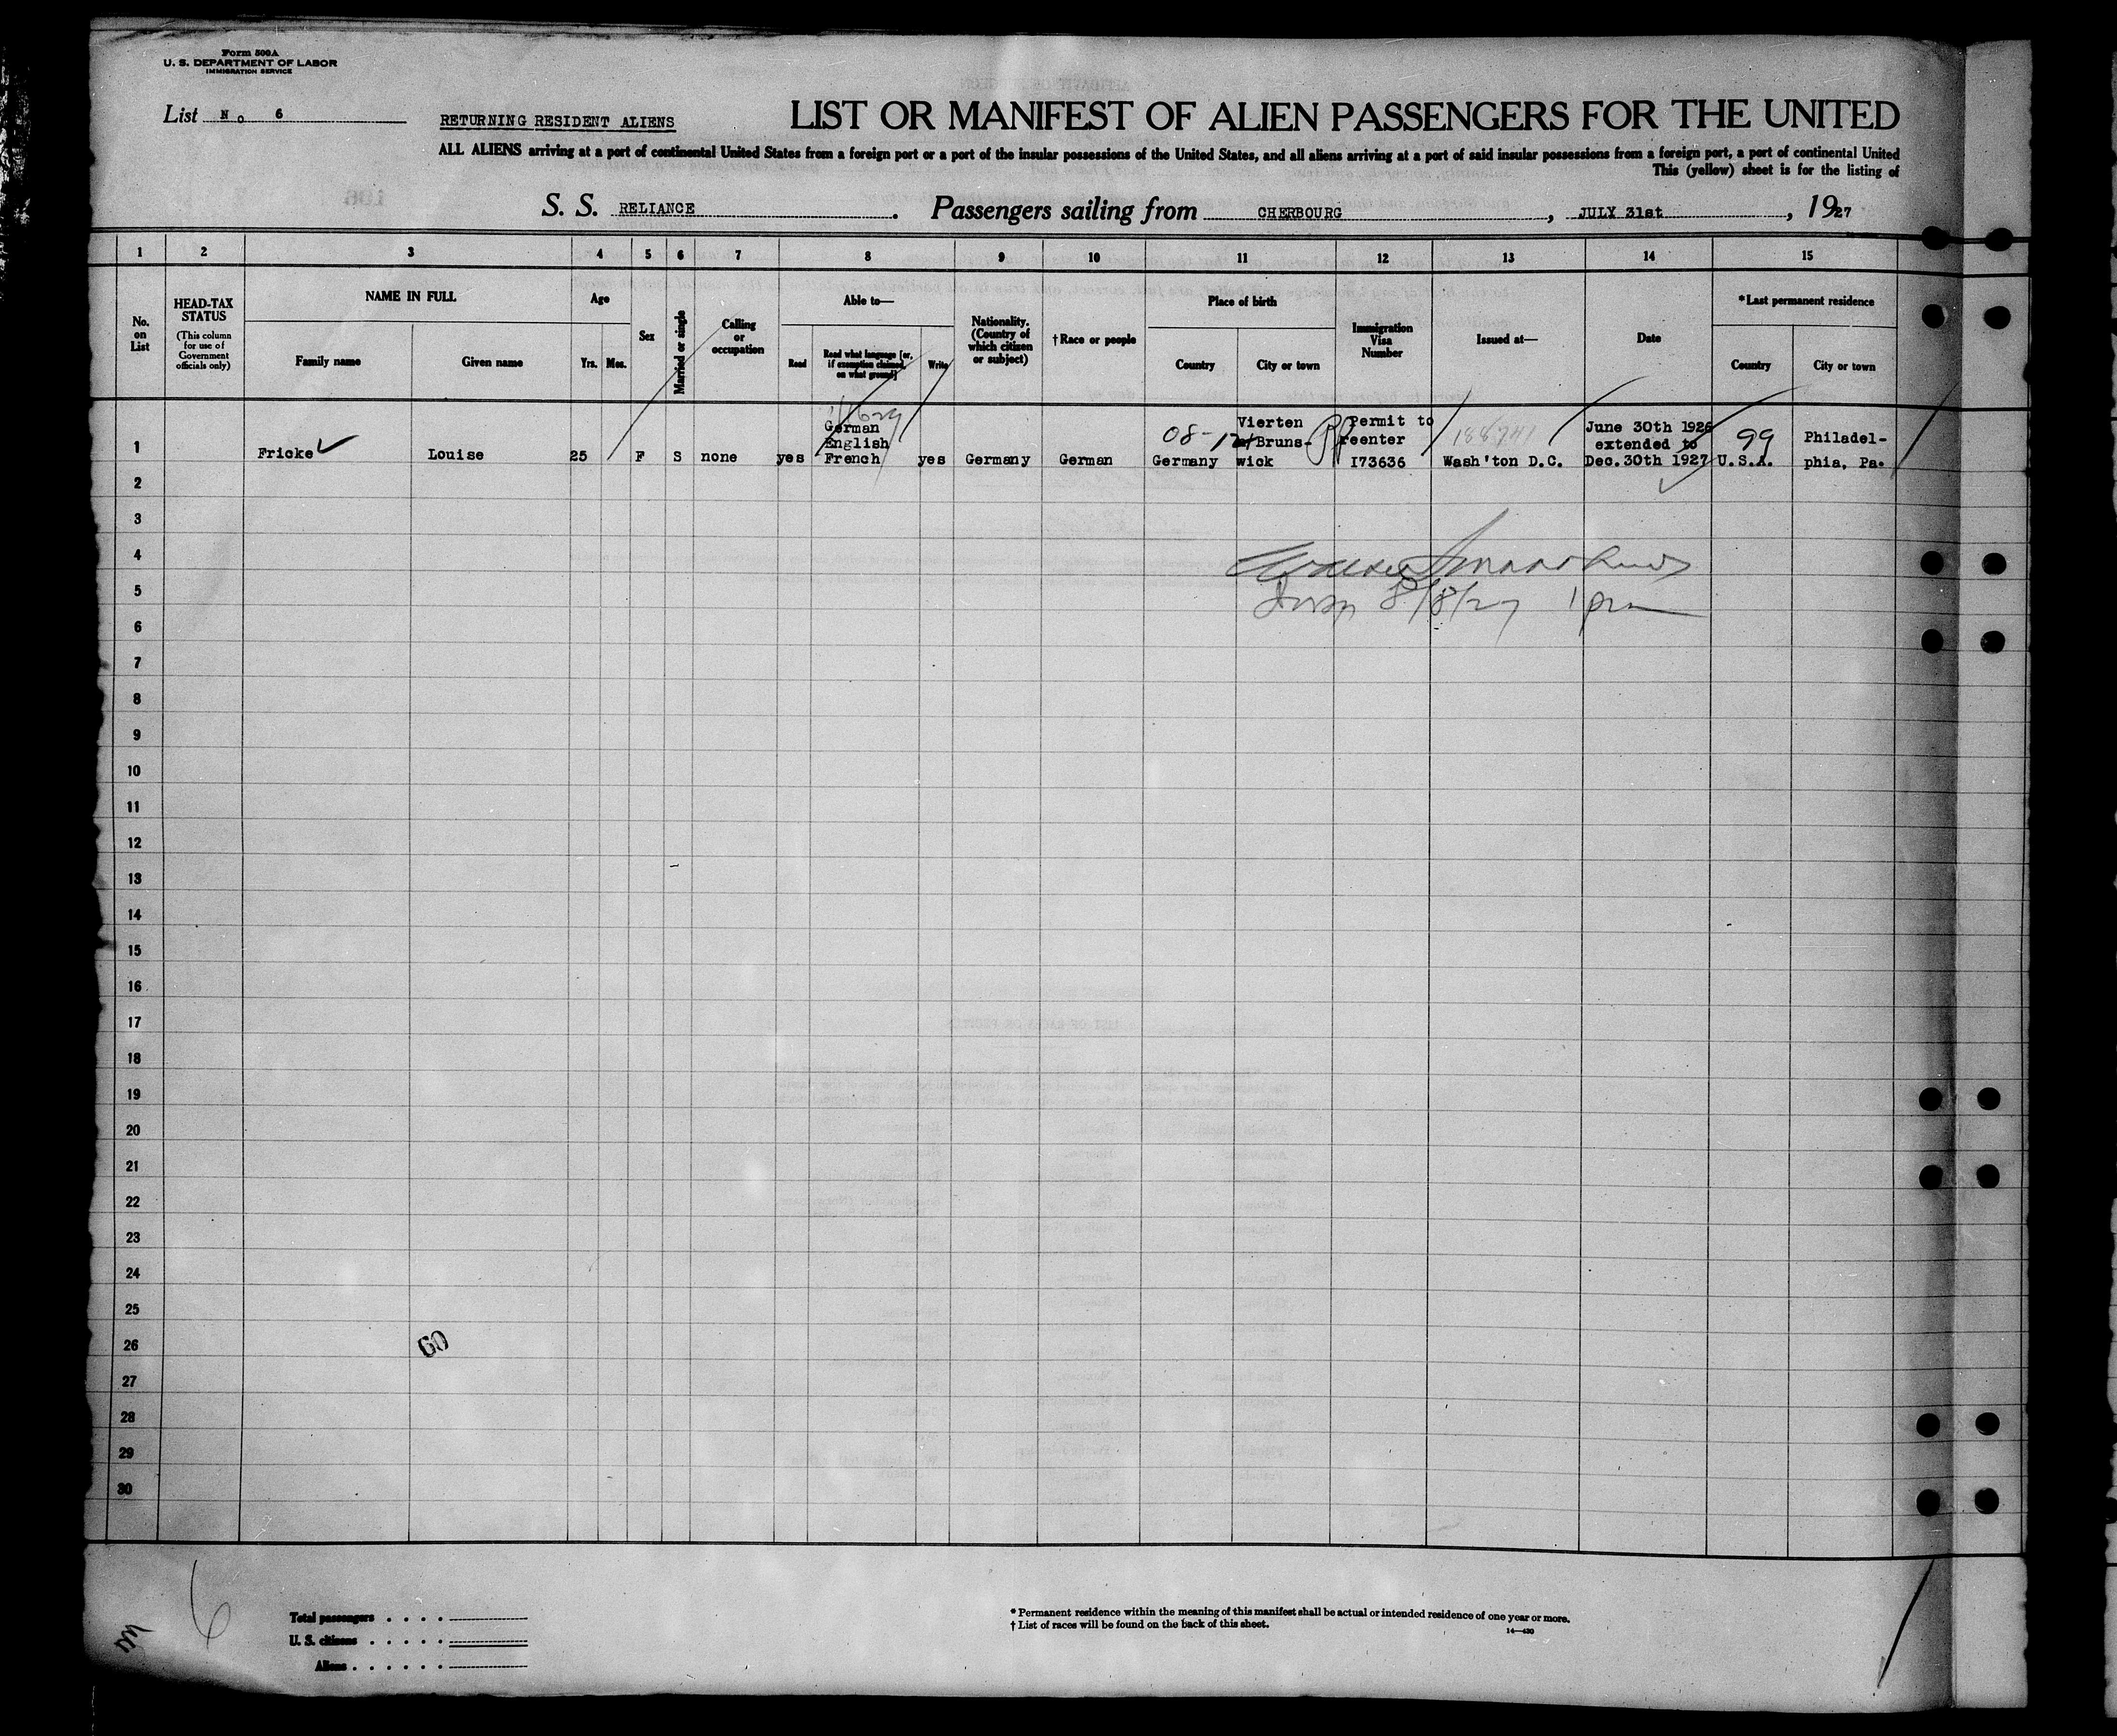 Form 500A
U. S. DEPARTMENT OF LABOR
IMMIGRATION SERVICE
List No 6
RETURNING RESIDENT ALIENS
LIST OR MANIFEST OF ALIEN PASSENGERS FOR THE UNITED
ALL ALIENS arriving at a port of continental United States from a foreign port or a port of the insular possessions of the United States, and all aliens arriving at a port of said insular possessions from a foreign port, a port of continental United
This (yellow) sheet is for the listing of
S. S. RELIANCE . Passengers sailing from CHERBOURG , JULY 31st , 1927
1 2 3 4 5 6 7 8 9 10 11 12 13 14 15
No. on List
HEAD-TAX STATUS
(This column for use of Government officials only)
NAME IN FULL
Family name
Given name
Age
Yrs. Mos.
Sex
Married or single
Calling or occupation
Able to—
Read
Read what language [or, if exemption claimed, on what ground]
Write
Nationality. (Country of which citizen or subject)
†Race or people
Place of birth
Country
City or town
Immigration Visa Number
Issued at—
Date
*Last permanent residence
Country
City or town
1 Fricke Louise 25 F S none yes German English French yes Germany German Germany Vierten Bruns- wick Permit to reenter I73636 188741 Wash'ton D.C. June 30th 1926 extended to Dec.30th 1927 99 U.S.A. Philadel- phia, Pa.
08-
2
3
4
5
8/8/27 1 pm
6
7
8
9
10
11
12
13
14
15
16
17
18
19
20
21
22
23
24
25
26
60
27
28
29
30
6
Total passengers
U. S. citizens
Aliens
* Permanent residence within the meaning of this manifest shall be actual or intended residence of one year or more.
† List of races will be found on the back of this sheet.
14—430